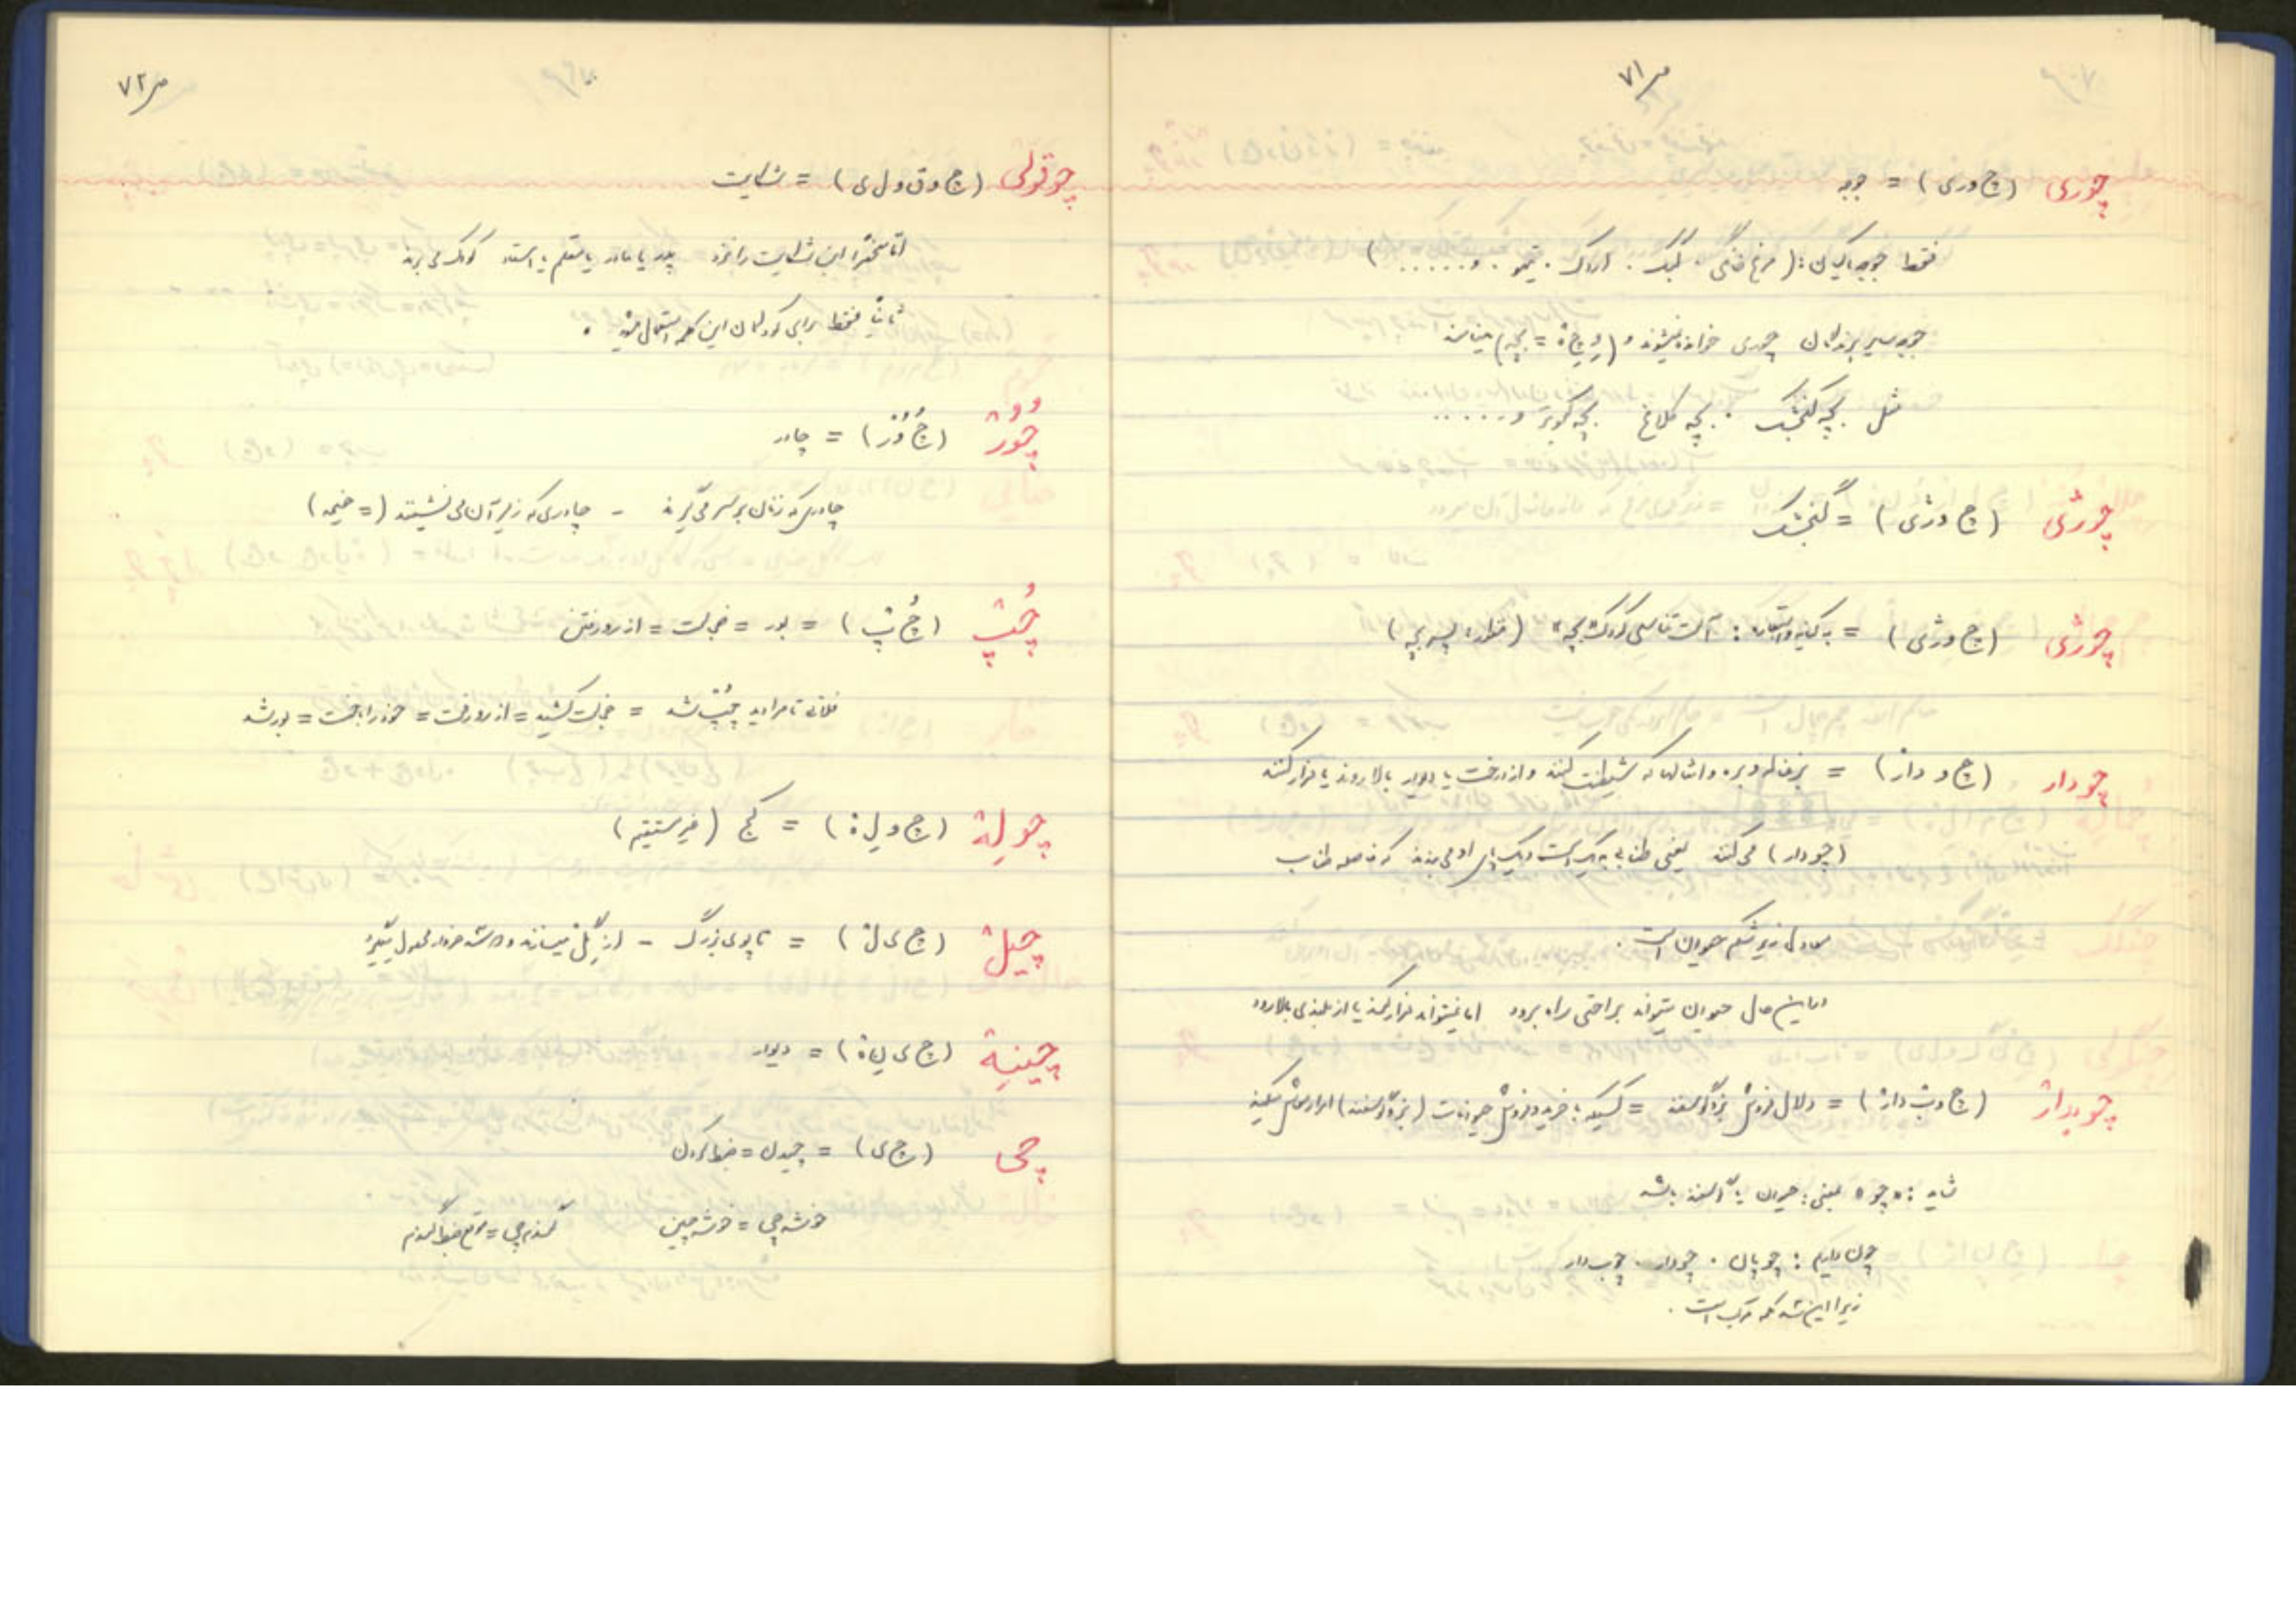 ص ۷۱
چوری (چ و ر ی) = جوجه
فقط جوجه ماکیان: (مرغ خانگی. کبک. اردک. تیهو. و......)
جوجه سایر پرندگان چوری خوانده نمیشوند و ( = بچه) مینامند
مثل بچه گنجشک. بچه کلاغ بچه کبوتر و.....
چورژی (چ و ر ژ ی) = گنجشک
چورژی (چ و ر ژ ی) = به کنایه و استعاره: آلت تناسلی کودک "بچه" (منظور: پسر بچه)
چودار (چ و دار) = بزغاله و بره و امثالها که شیطنت کنند و از درخت یا دیوار بالا روند یا فرار کنند
(چودار) می کنند یعنی طنابی به یک دست و یک پای او می بندند که فاصله طناب
معادل زیر شکم حیوان است.
در این حال حیوان میتواند براحتی راه برود اما نمیتواند فرار کند یا از بلندی بالا رود
چوبدار (چ و ب دار) = دلال فروش بز و گوسفند = کسیکه با خرید و فروش حیوانات (بز و گوسفند) امرار معاش میکند
شاید: "چو" بمعنی: حیوان یا گوسفند باشد
چون داریم: چوپان. چودار. چوبدار
زیرا این سه کلمه مرکب است.
ص ۷۲
چوقولی (چ و ق و ل ی) = شکایت
اما منحصراً این شکایت را نزد پدر یا مادر یا معلم یا استاد کودک می برند
ثانیاً فقط برای کودکان این کلمه استعمال میشود.
چُوُر (چُ وُ ر) = چادر
چادری که زنان بر سر می گیرند - چادری که زیر آن می نشینند (= خیمه)
چُپ (چُ پ) = بور = خجلت = از رو رفتن
فلانی تا مرا دید چُپ شد = خجلت کشید = از رو رفت = خود را باخت = بور شد
چولِه (چ و لِ ه) = کج (غیر مستقیم)
چیل (چ ی ل) = تاپوی بزرگ - از گِل میسازند و
چینیه (چ ی ن ی ه) = دیوار
چی (چ ی) = چیدن = ضبط کردن
خوشه چی = خوشه چین گندم چی = موقع ضبط گندم